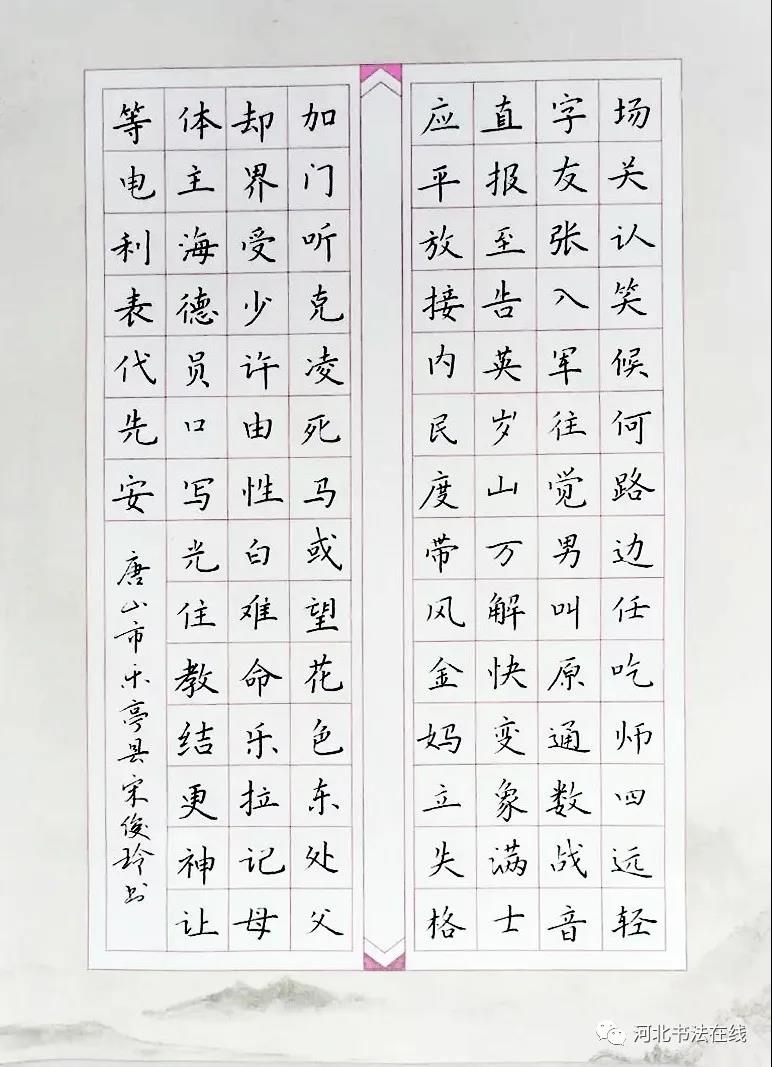 场关认笑候何路边任吃师四远轻
字友张入军往觉男叫原通数战音
直报至告英岁山万解快变象满士
应平放接内民度带风金妈立失格
加门听克凌死马或望花色东处父
却界受少许由性白难命乐拉记母
体主海德员口写光住教结更神让
等电利表代先安
唐山市乐亭县宋俊玲书
河北书法在线